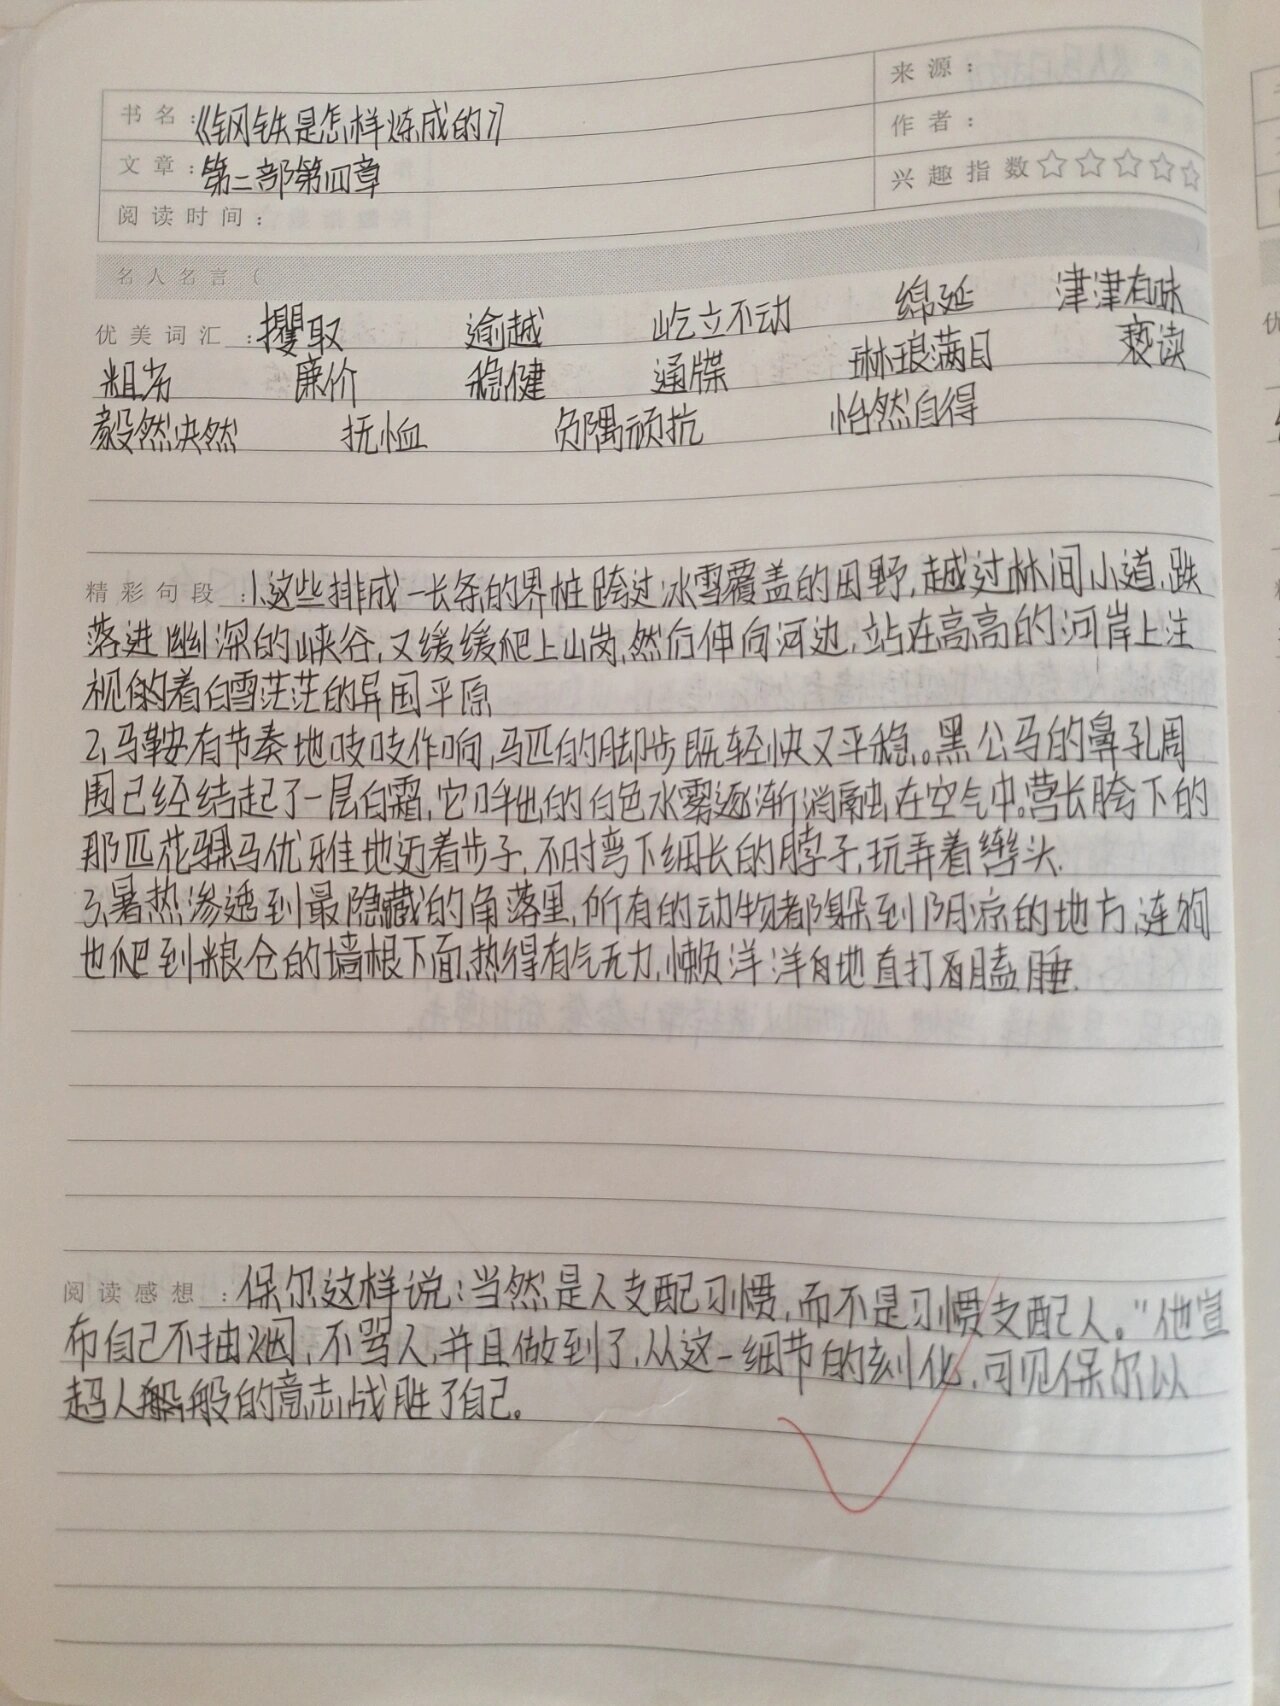 书名：《钢铁是怎样炼成的》
来源：
文章：第二部第四章
作者：
阅读时间：
兴趣指数☆☆☆☆☆
名人名言（
优美词汇：攫取 逾越 屹立不动 绵延 津津有味
粗劣 廉价 稳健 通牒 琳琅满目 亵渎
毅然决然 抚恤 负隅顽抗 怡然自得
精彩句段：1、这些排成一长条的界桩跨过冰雪覆盖的田野,越过林间小道,跌
落进幽深的峡谷,又缓缓爬上山岗,然后伸向河边,站在高高的河岸上注
视着白雪茫茫的异国平原
2、马鞍有节奏地吱吱作响,马匹的脚步既轻快又平稳。黑公马的鼻孔周
围已经结起了一层白霜,它呼出的白色水雾逐渐消融在空气中。营长胯下的
那匹花骒马优雅地迈着步子,不时弯下细长的脖子,玩弄着辔头.
3、暑热渗透到最隐藏的角落里,所有的动物都躲到阴凉的地方,连狗
也爬到粮仓的墙根下面,热得有气无力,懒洋洋自地直打着瞌睡.
阅读感想：保尔这样说:当然是人支配习惯,而不是习惯支配人。"他宣
布自己不抽烟,不骂人,并且做到了,从这一细节的刻化,可见保尔以
超人般的意志战胜了自己。